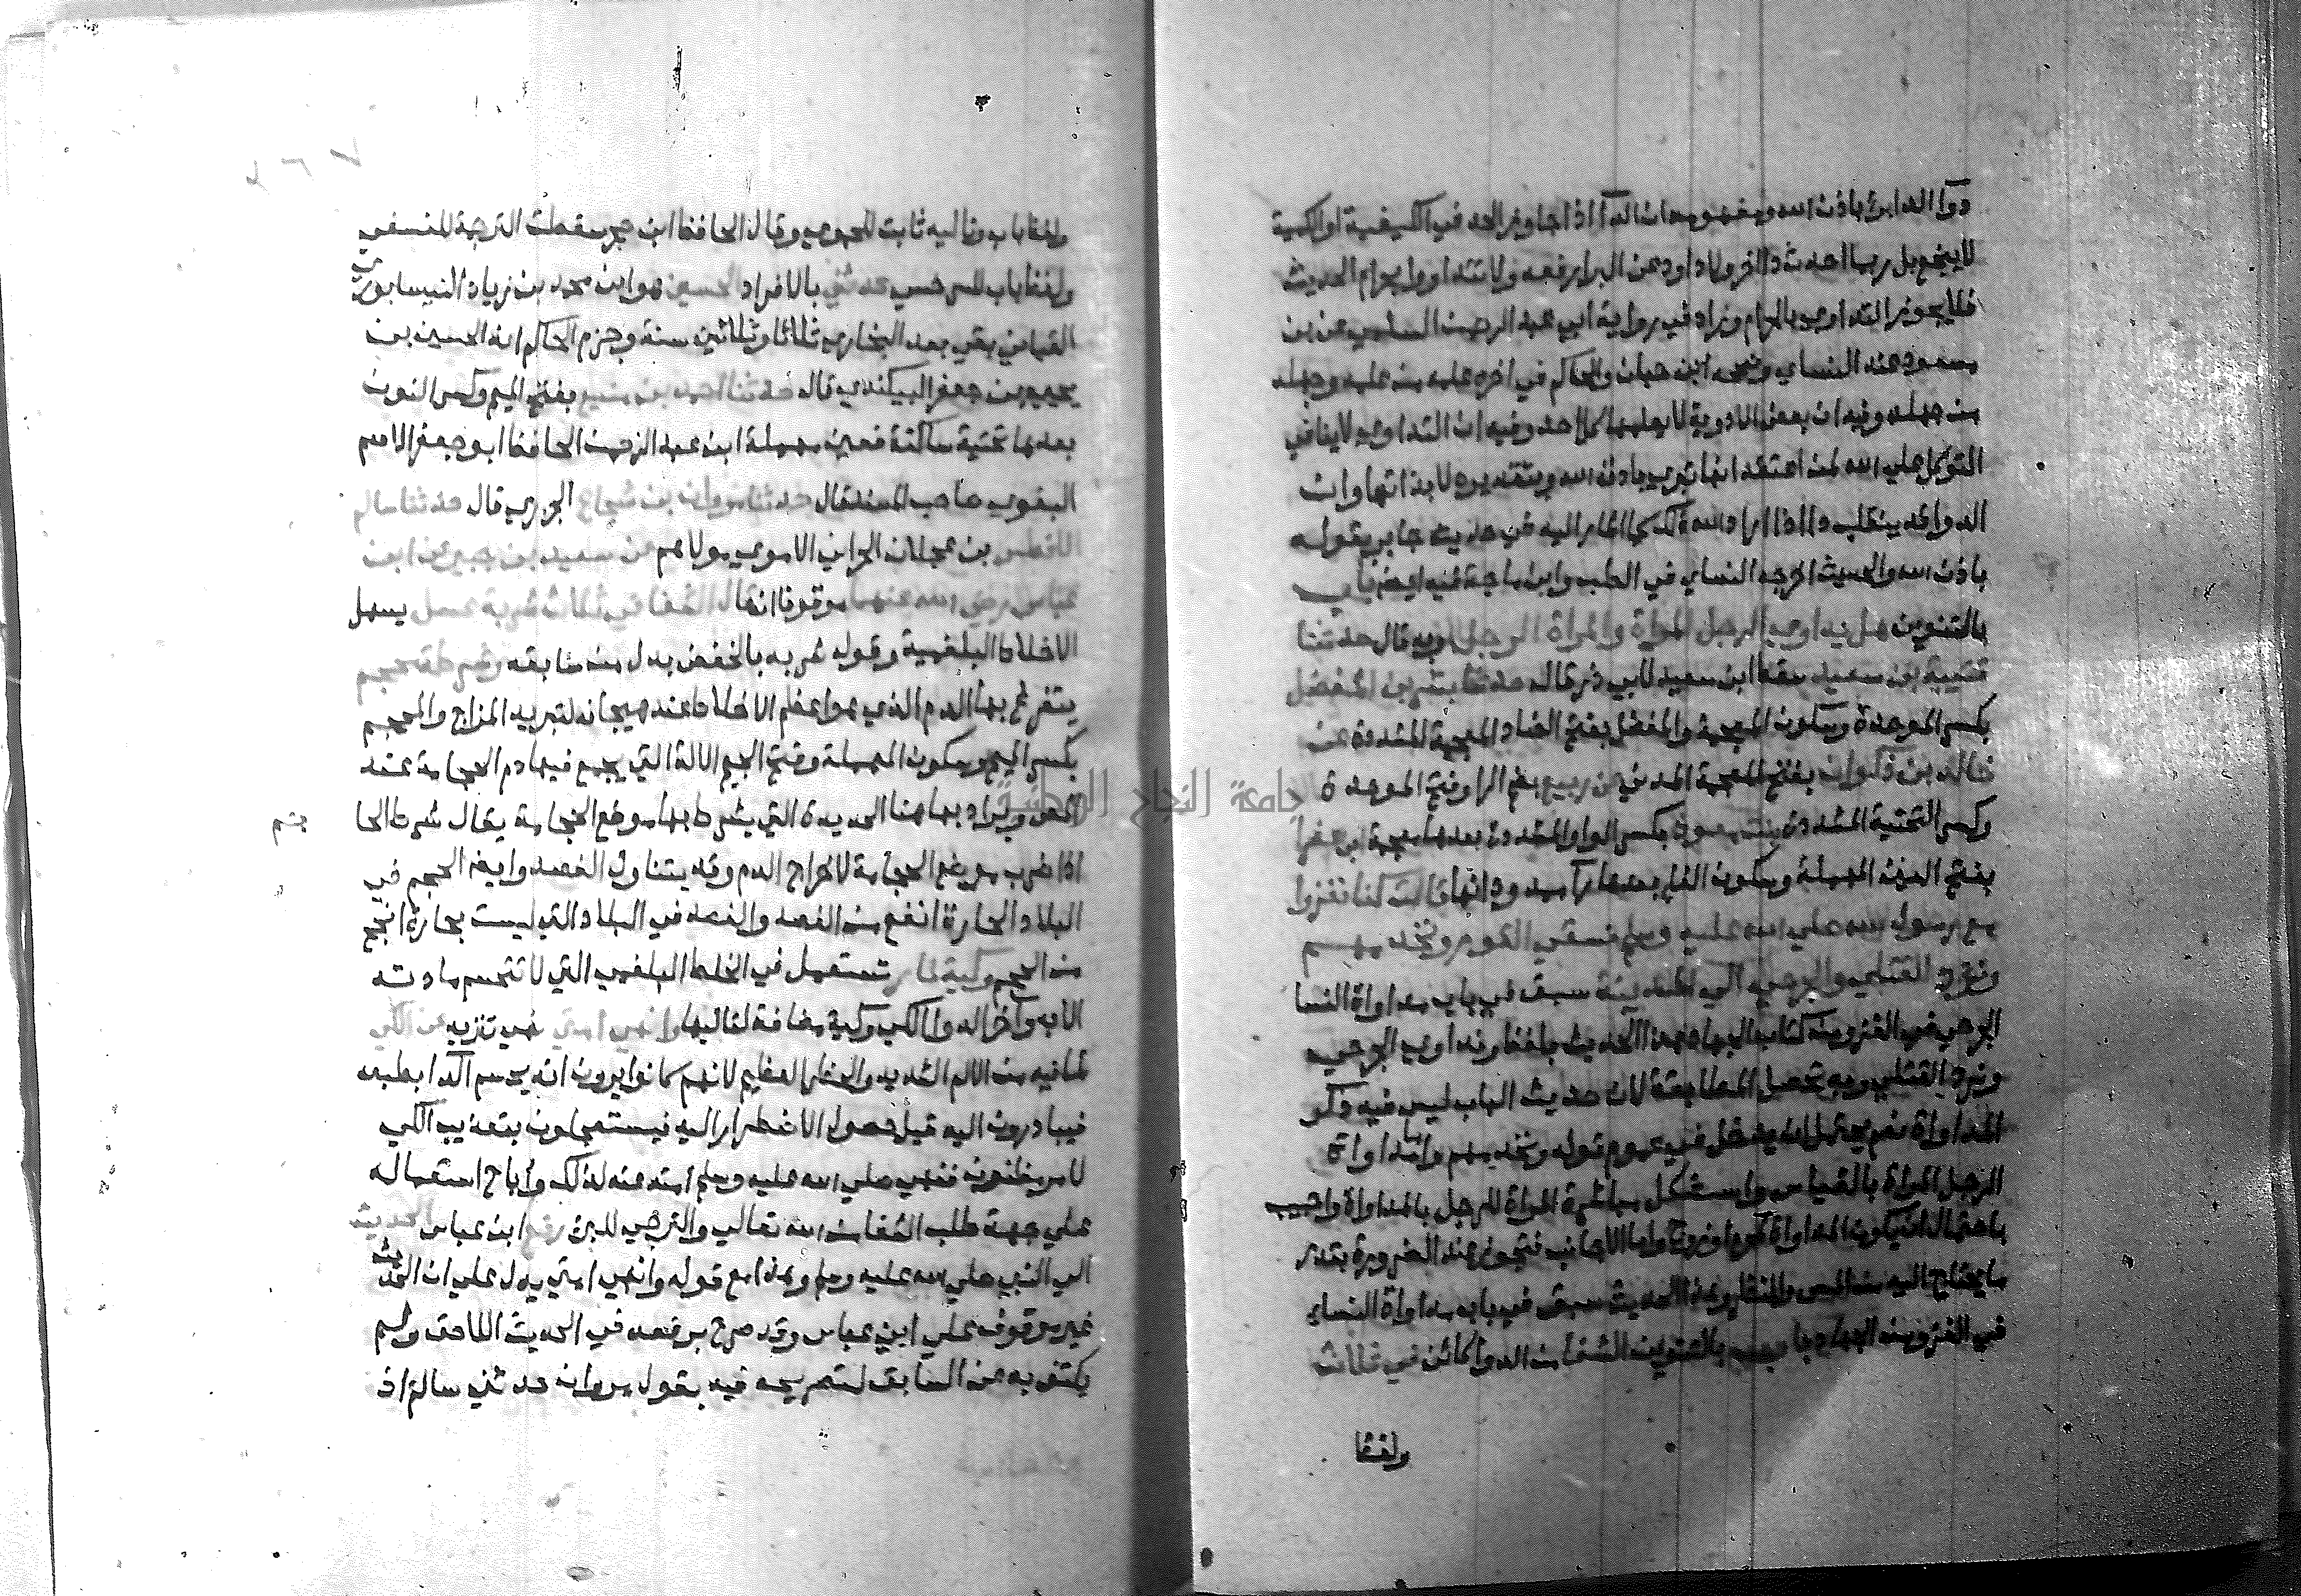 دوآ الدابرئ باذن الله ومفهومه ان الدآ اذا جاوز الحد في الكيفية او الكمية
لا ينجع بل ربما احدث دآ اخر ولابي داود عن ابي الدردا رفعه ولا تتداووا بحرام الحديث
فلا يجوز التداوي بالحرام وزاد في رواية ابي عبد الرحمن السلمي عن بن
مسعود عند النساي وصححه ابن حبان والحاكم في اخره علمه من علمه وجهله
من جهله وفيه ان بعض الادوية لا يعلمها كل احد وفيه ان التداوي لا ينافي
التوكل علي الله لمن اعتقد انها تبري باذن الله وبتقديره لا بذاتها وان
الدوا قد ينقلب دآ اذا اراد الله ذلك كما اشار اليه في حديث جابر بقوله
باذن الله والحديث اخرجه النساي في الطب وابن ماجة فيه ايضا باب
بالتنوين هل يداوي الرجل المراة والمراة الرجل وبه قال حدثنا
قتيبة بن سعيد سقط ابن سعيد لابي ذر قال حدثنا بشر بن المفضل
بكسر الموحدة وسكون المعجمة والمفضل بفتح الضاد المعجمة المشددة عن
خالد بن ذكوان بفتح المعجمة المدني عن ربيع بضم الرا وفتح الموحدة
وكسر التحتية المشددة بنت معوذ بكسر الواو المشددة بعدها معجمة ابن عفرا
بفتح العين المهملة وسكون الفا بعدها رآ ممدودا انها قالت كنا نغزوا
مع رسول الله صلي الله عليه وسلم نسقي القوم ونخدمهم
ونرد القتلي والجرحي الي المدينة سبق في باب مداواة النسا
الجرحي في الغزو من كتاب الجهاد هذا الحديث بلفظ ونداوي الجرحي
ونرد القتلي وبه تحصل المطابقة لان حديث الباب ليس فيه ذكر
المداواة نعم يحتمل ان يدخل في عموم قوله ونخدمهم واما مداواة
الرجل المراة بالقياس واستشكل مباشرة المراة للرجل بالمداواة واجيب
باحتمال ان يكون المداواة لمحرم او زوج واما الاجانب فتجوز عند الضرورة بقدر
ما يحتاج اليه من المس والنظر وهذا الحديث سبق في باب مداواة النساي
في الغزو من الجهاد باب بالتنوين الشفا من الدوا كائن في ثلاث
ولفظ
ولفظ باب وتاليه ثابت للحموي وقال الحافظ ابن حجر سقطت الترجمة للنسفي
ولفظ باب للسرخسي حدثني بالافراد الحسين هو ابن محمد بن زياد النيسابوري
القباني بقي بعد البخاري ثلاثا وثلاثين سنة وجزم الحاكم انه الحسين بن
يحيي بن جعفر البيكندي قال حدثنا احمد بن منيع بفتح الميم وكسر النون
بعدها تحتية ساكنة فعين مهملة ابن عبد الرحمن الحافظ ابو جعفر الاصم
البغوي صاحب المسند قال حدثنا مروان بن شجاع الجزري قال حدثنا سالم
الافطس بن عجلان الحراني الاموي مولاهم عن سعيد بن جبير عن ابن
عباس رضي الله عنهما موقوفا انه قال الشفا في ثلاث شربة عسل يسهل
الاخلاط البلغمية وقوله شربه بالخفض بدل من سابقه وشرطة محجم
يتفرغ بها الدم الذي هو اعظم الاخلاط عند هيجانه لتبريد المزاج والمحجم
بكسر الميم وسكون المهملة وفتح الجيم الالة التي يجمع فيها دم الحجامة عند
المص ويراد بها هنا الحديدة التي يشرط بها موضع الحجامة يقال شرط الحا
جم
اذا ضرب موضع الحجامة لاخراج الدم وقد يتناول الفصد وايضا الحجم في
البلاد الحارة انفع من الفصد والفصد في البلاد التي ليست بحارة انجح
من الحجم وكية نار تستعمل في الخلط البلغمي التي لا تنحسم مادته
الا به وآخر الدوا الكي وكية مضافة لتاليها وانهي امتي نهي تنزيه عن الكي
لما فيه من الالم الشديد والخطر العظيم لانهم كانوا يرون انه يحسم الدآ بطبعه
فيبادرون اليه قبل حصول الاضطرار اليه فيستعجلون بتعذيب الكي
لامر مظنون فنهي صلي الله عليه وسلم امته عنه لذلك واباح استعماله
علي جهة طلب الشفا من الله تعالي والترجي للبرئ رفع ابن عباس الحديث
الي النبي صلي الله عليه وسلم وهذا مع قوله وانهي امتي يدل علي ان الحديث
غير موقوف علي ابن عباس وقد صرح برفعه في الحديث اللاحق ولم
يكتف به عن السابق لتصريحه فيه بقول مروان حدثني سالم اذ
جامعة النجاح الوطنية